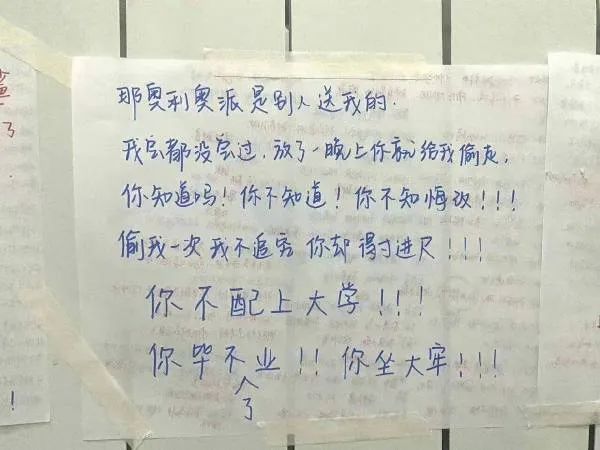 那奥利奥派是别人送我的.
我尝都没尝过.放了一晚上你就给我偷走.
你知道吗!你不知道!你不知悔改!!!
偷我一次我不追究你却得寸进尺!!!
你不配上大学!!!
你毕不了业!!你坐大牢!!!
了
!